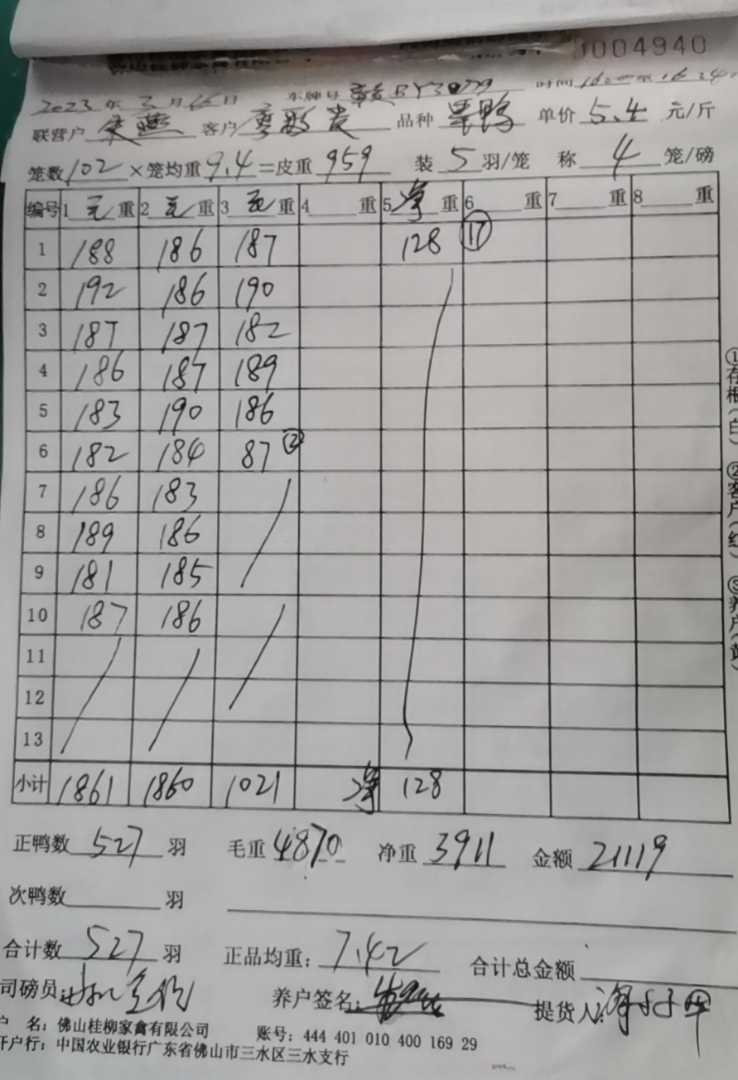 0004940
2023年3月16日
联营户 客户 品种 单价 5.4 元/斤
笼数 102 ×笼均重 9.4 =皮重 959 装 5 羽/笼 称 4 笼/磅
编号 1 毛 重 2 毛 重 3 毛 重 4 重 5 净 重 6 重 7 重 8 重
1 188 186 187 128 ⑰
2 192 186 190
3 187 187 182
4 186 187 189
5 183 190 186
6 182 184 87 ②
7 186 183
8 189 186
9 181 185
10 187 186
11
12
13
小计 1861 1860 1021 净 128
正鸭数 527 羽 毛重 4870 净重 3911 金额 21119
次鸭数 羽
合计数 527 羽 正品均重: 7.42 合计总金额
司磅员: 养户签名: 提货人:
户 名: 佛山桂柳家禽有限公司 账号: 444 401 010 400 169 29
开户行: 中国农业银行广东省佛山市三水区三水支行
①存根(白) ②客户(红) ③养户(黄)